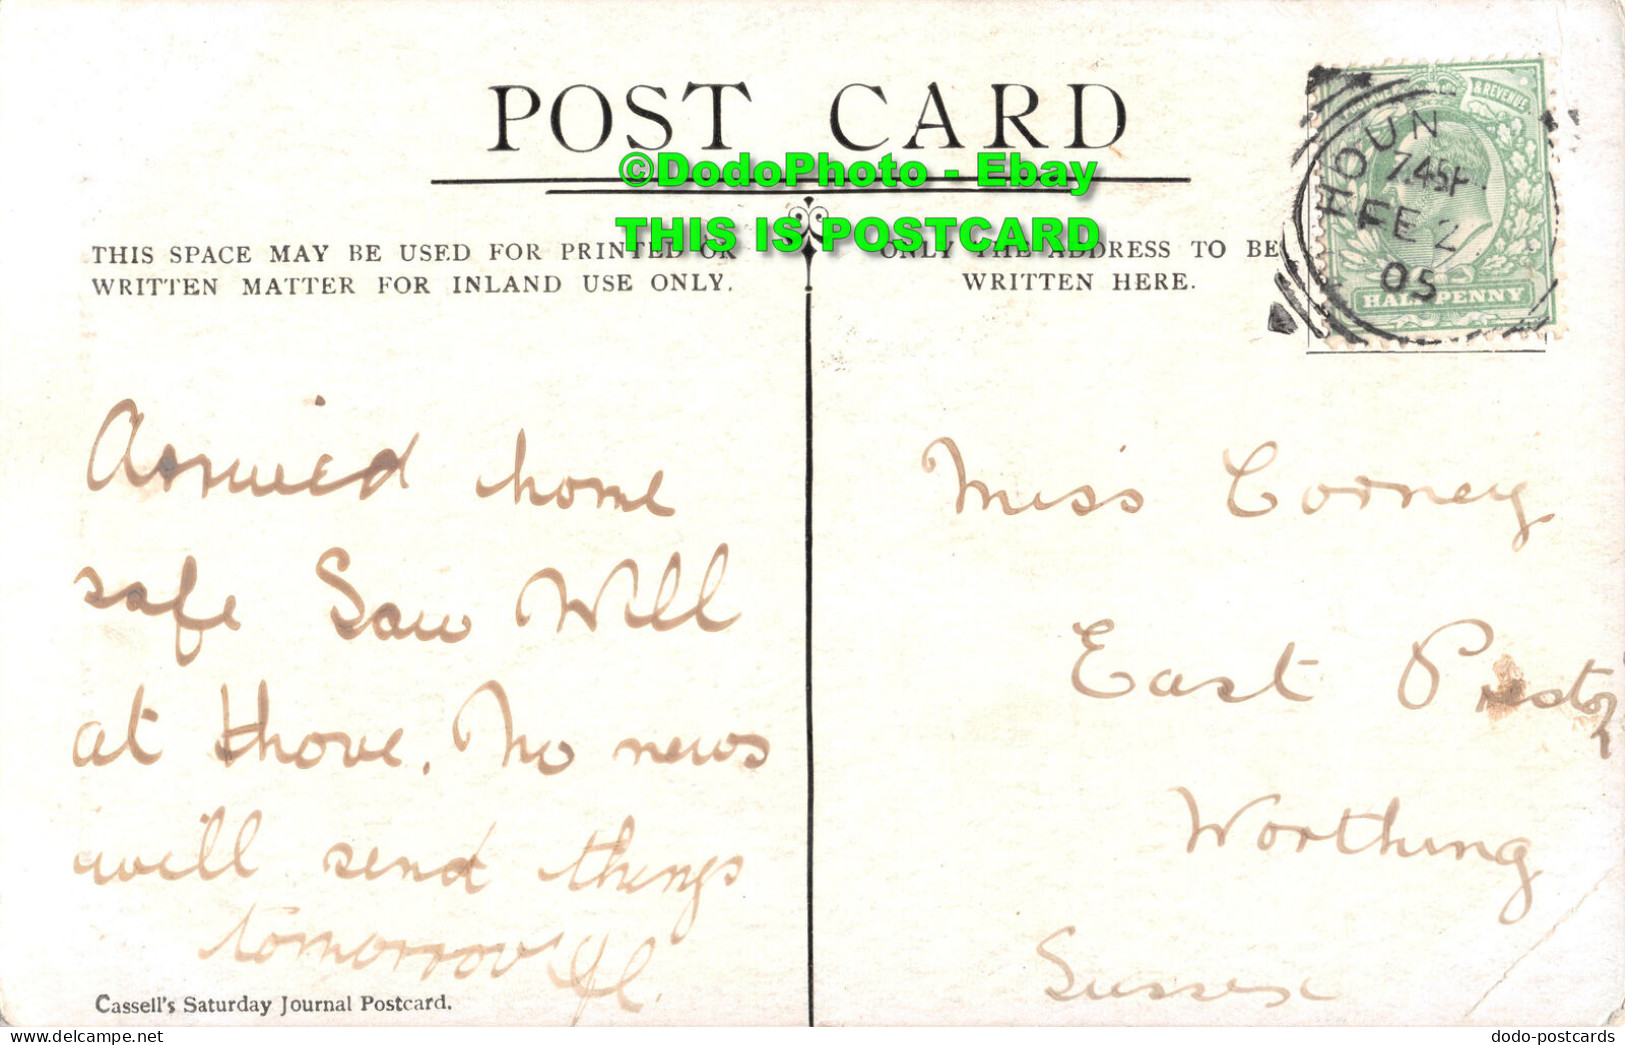 POST CARD
©DodoPhoto - Ebay
THIS IS POSTCARD
THIS SPACE MAY BE USED FOR PRINTED OR
WRITTEN MATTER FOR INLAND USE ONLY.
ONLY THE ADDRESS TO BE
WRITTEN HERE.
& REVENUE
HOUN
7.45P
FE 2
05
HALFPENNY
Arrived home
safe Saw Will
at Hove. No news
will send things
tomorrow
Miss Corney
East Preston
Worthing
Sussex
Cassell's Saturday Journal Postcard.
dodo-postcards